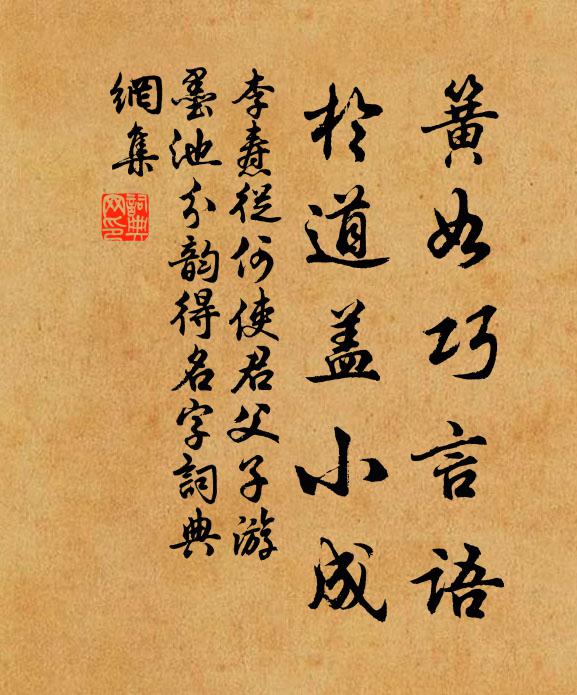 簧如巧言语
於道盖小成
李焘從何使君父子游
墨池分韵得名字詞典
網集
詞典网印